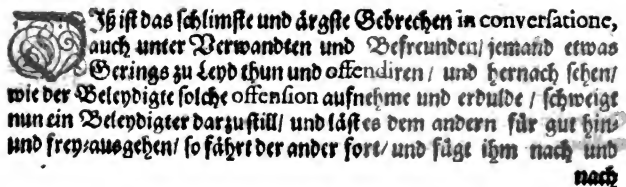 DIß ist das schlimste und ärgste Gebrechen in conversatione,
auch unter Verwandten und Befreunden/ jemand etwas
Gerings zu Leyd thun und offendiren/ und hernach sehen/
wie der Beleydigte solche offension aufnehme und erdulde / schweigt
nun ein Beleydigter darzu still/ und läst es dem andern für gut hin-
und frey-ausgehen/ so fährt der ander fort/ und fügt ihm nach und
nach